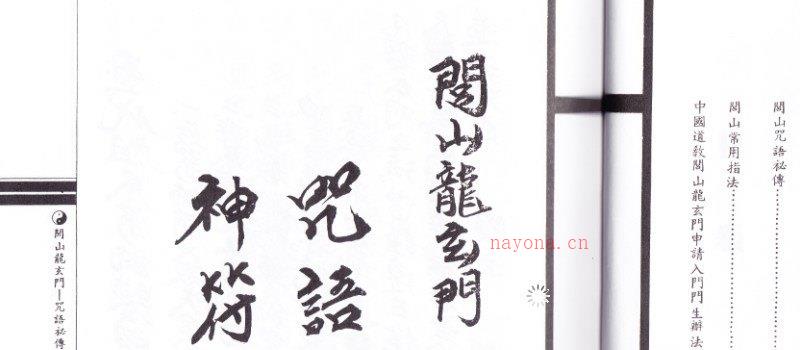 閭山咒語祕傳
閭山常用指法
中國道敎閭山龍玄門申請入門門生辦法
閭山龍玄門
咒語
神符
閭山龍玄門－咒語祕傳
nayona.cn